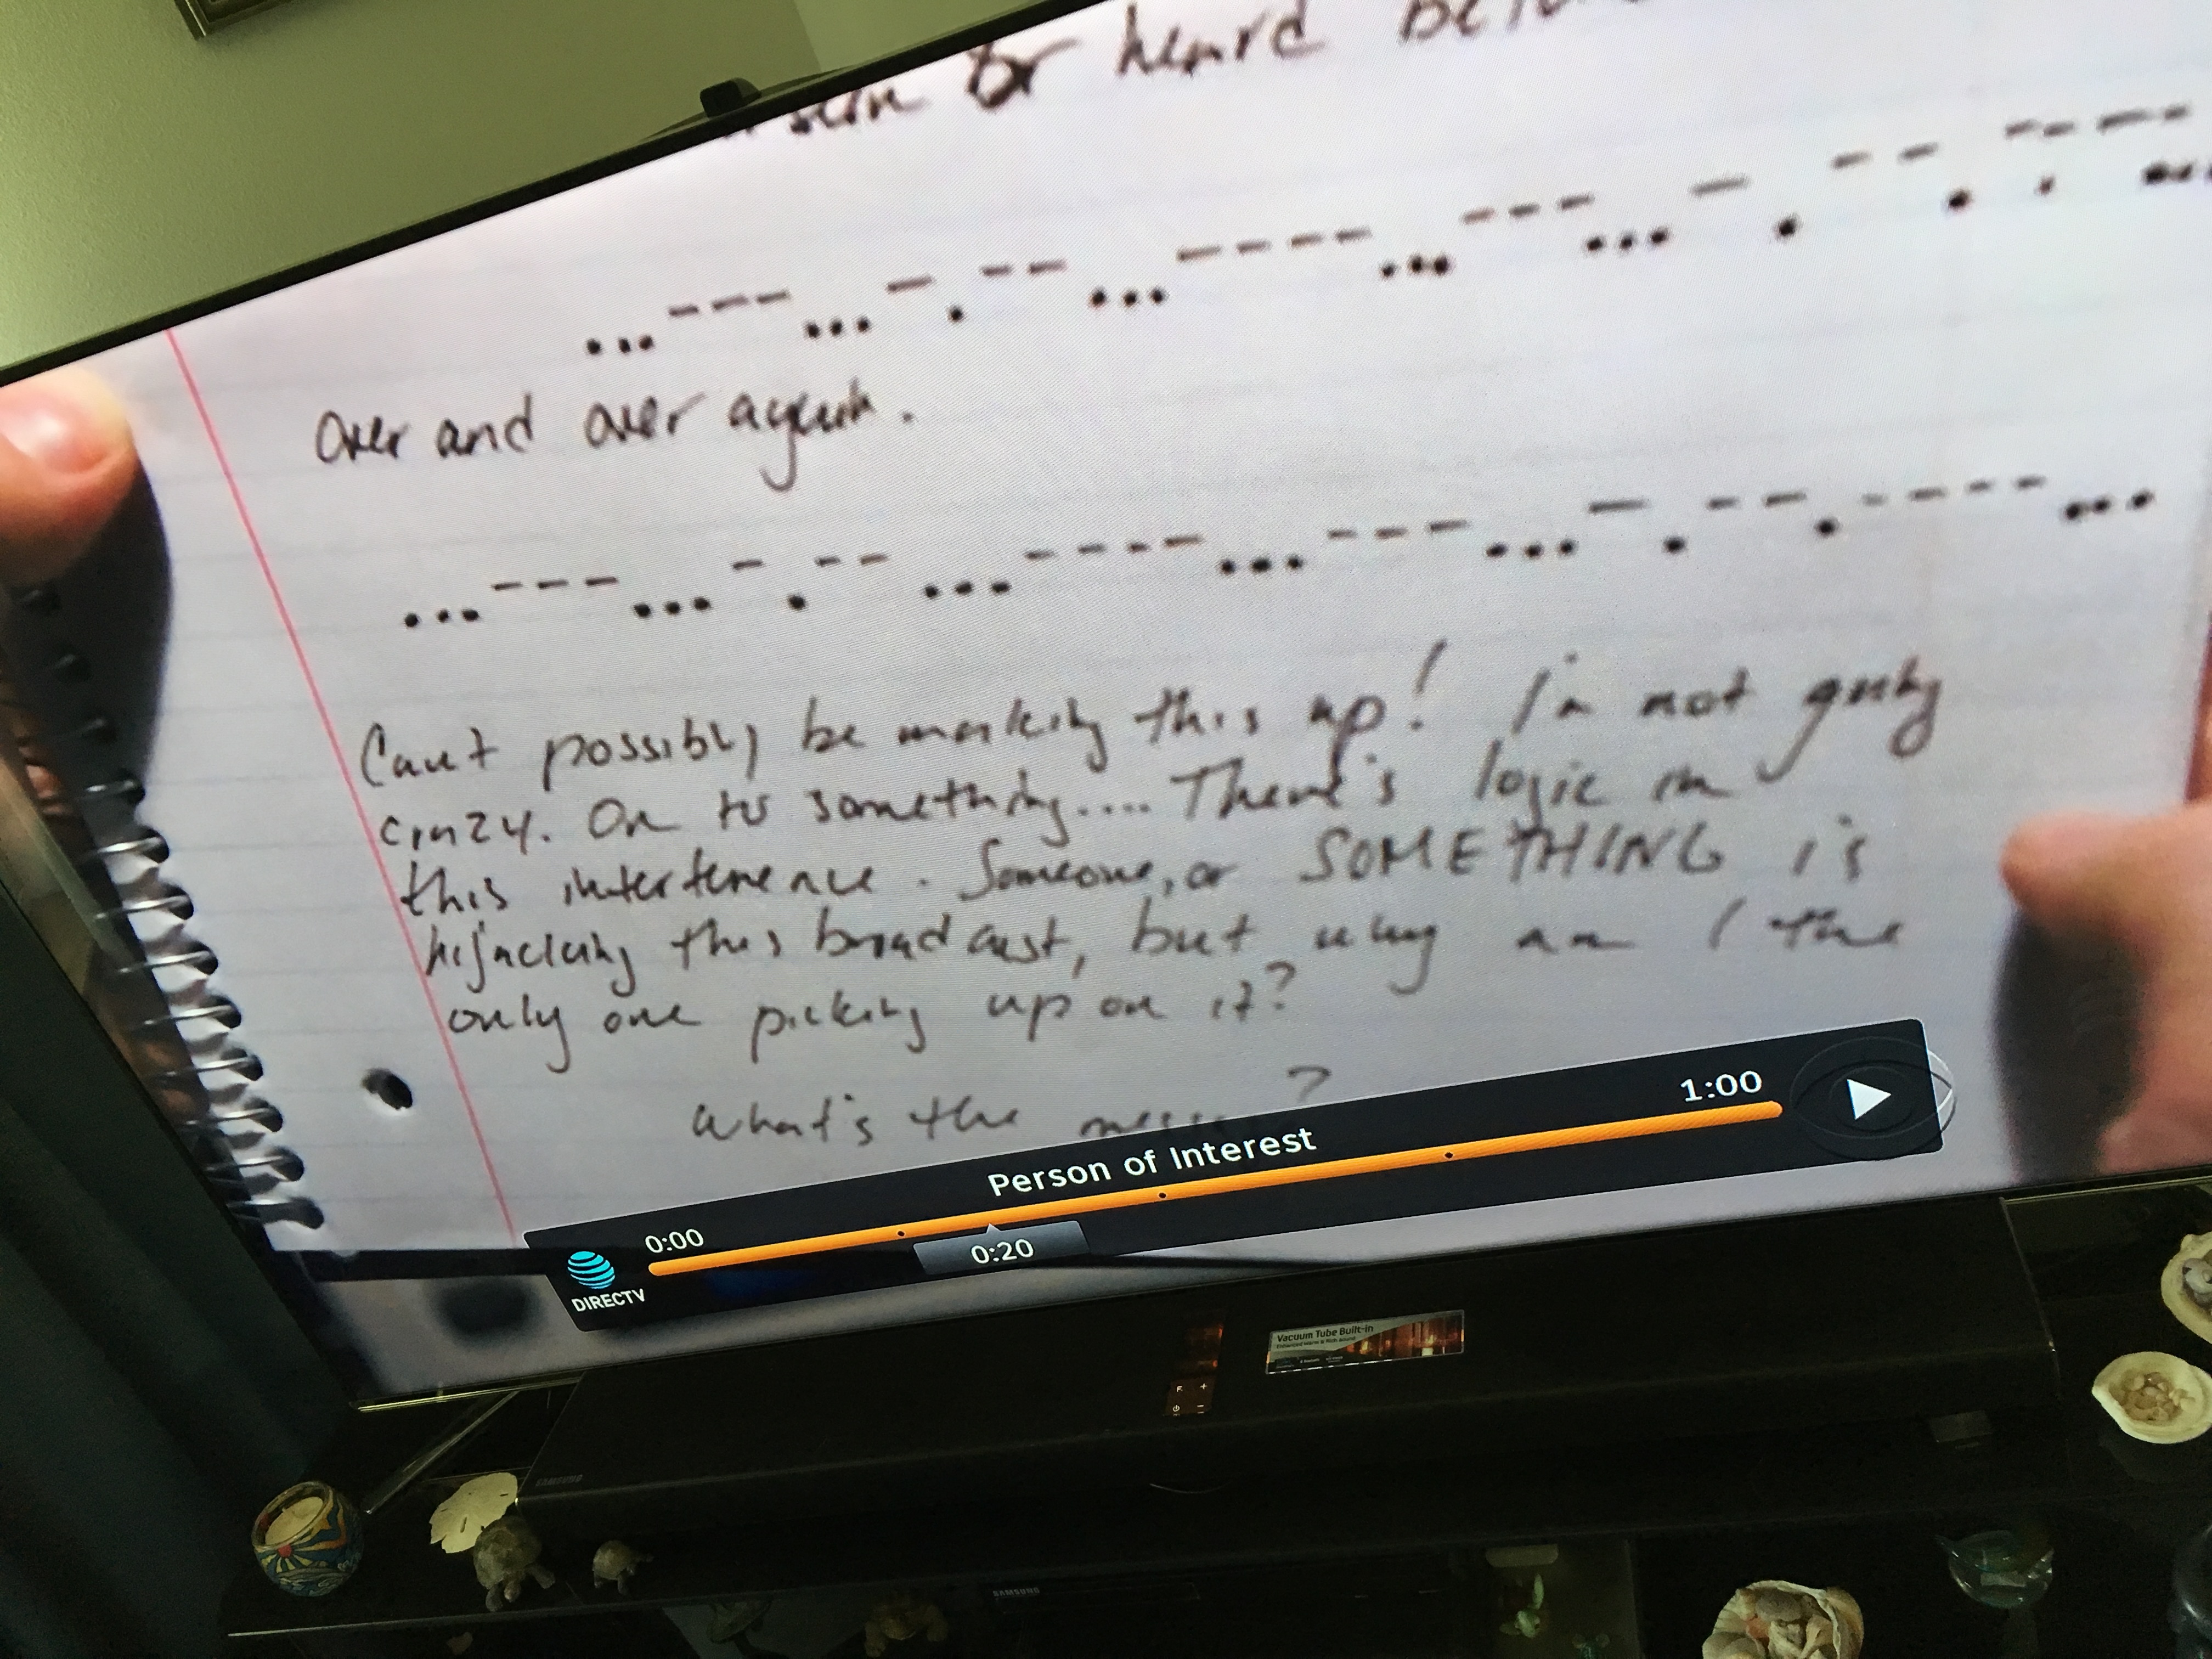 seen or heard
...---...-.--...----...---...-.--.
over and over again.
...---...-.--...----...---...-.--.----...
Can't possibly be making this up! I'm not going
crazy. On to something.... There's logic in
this interference. Someone, or SOMETHING is
hijacking this broadcast, but why am I the
only one picking up on it?
What's the ?
1:00
Person of Interest
0:00
0:20
DIRECTV
Vacuum Tube Built-in
SAMSUNG
SAMSUNG